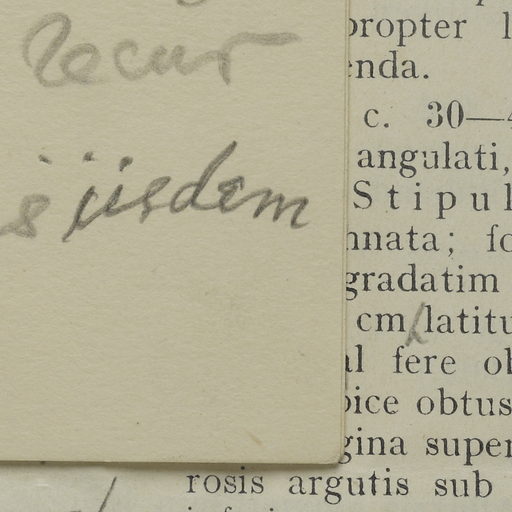 recur
s iisdem
propter l
enda.
c. 30—4
angulati,
Stipul
nnata; fo
gradatim
cm latitu
al fere ob
pice obtus
gina super
rosis argutis sub